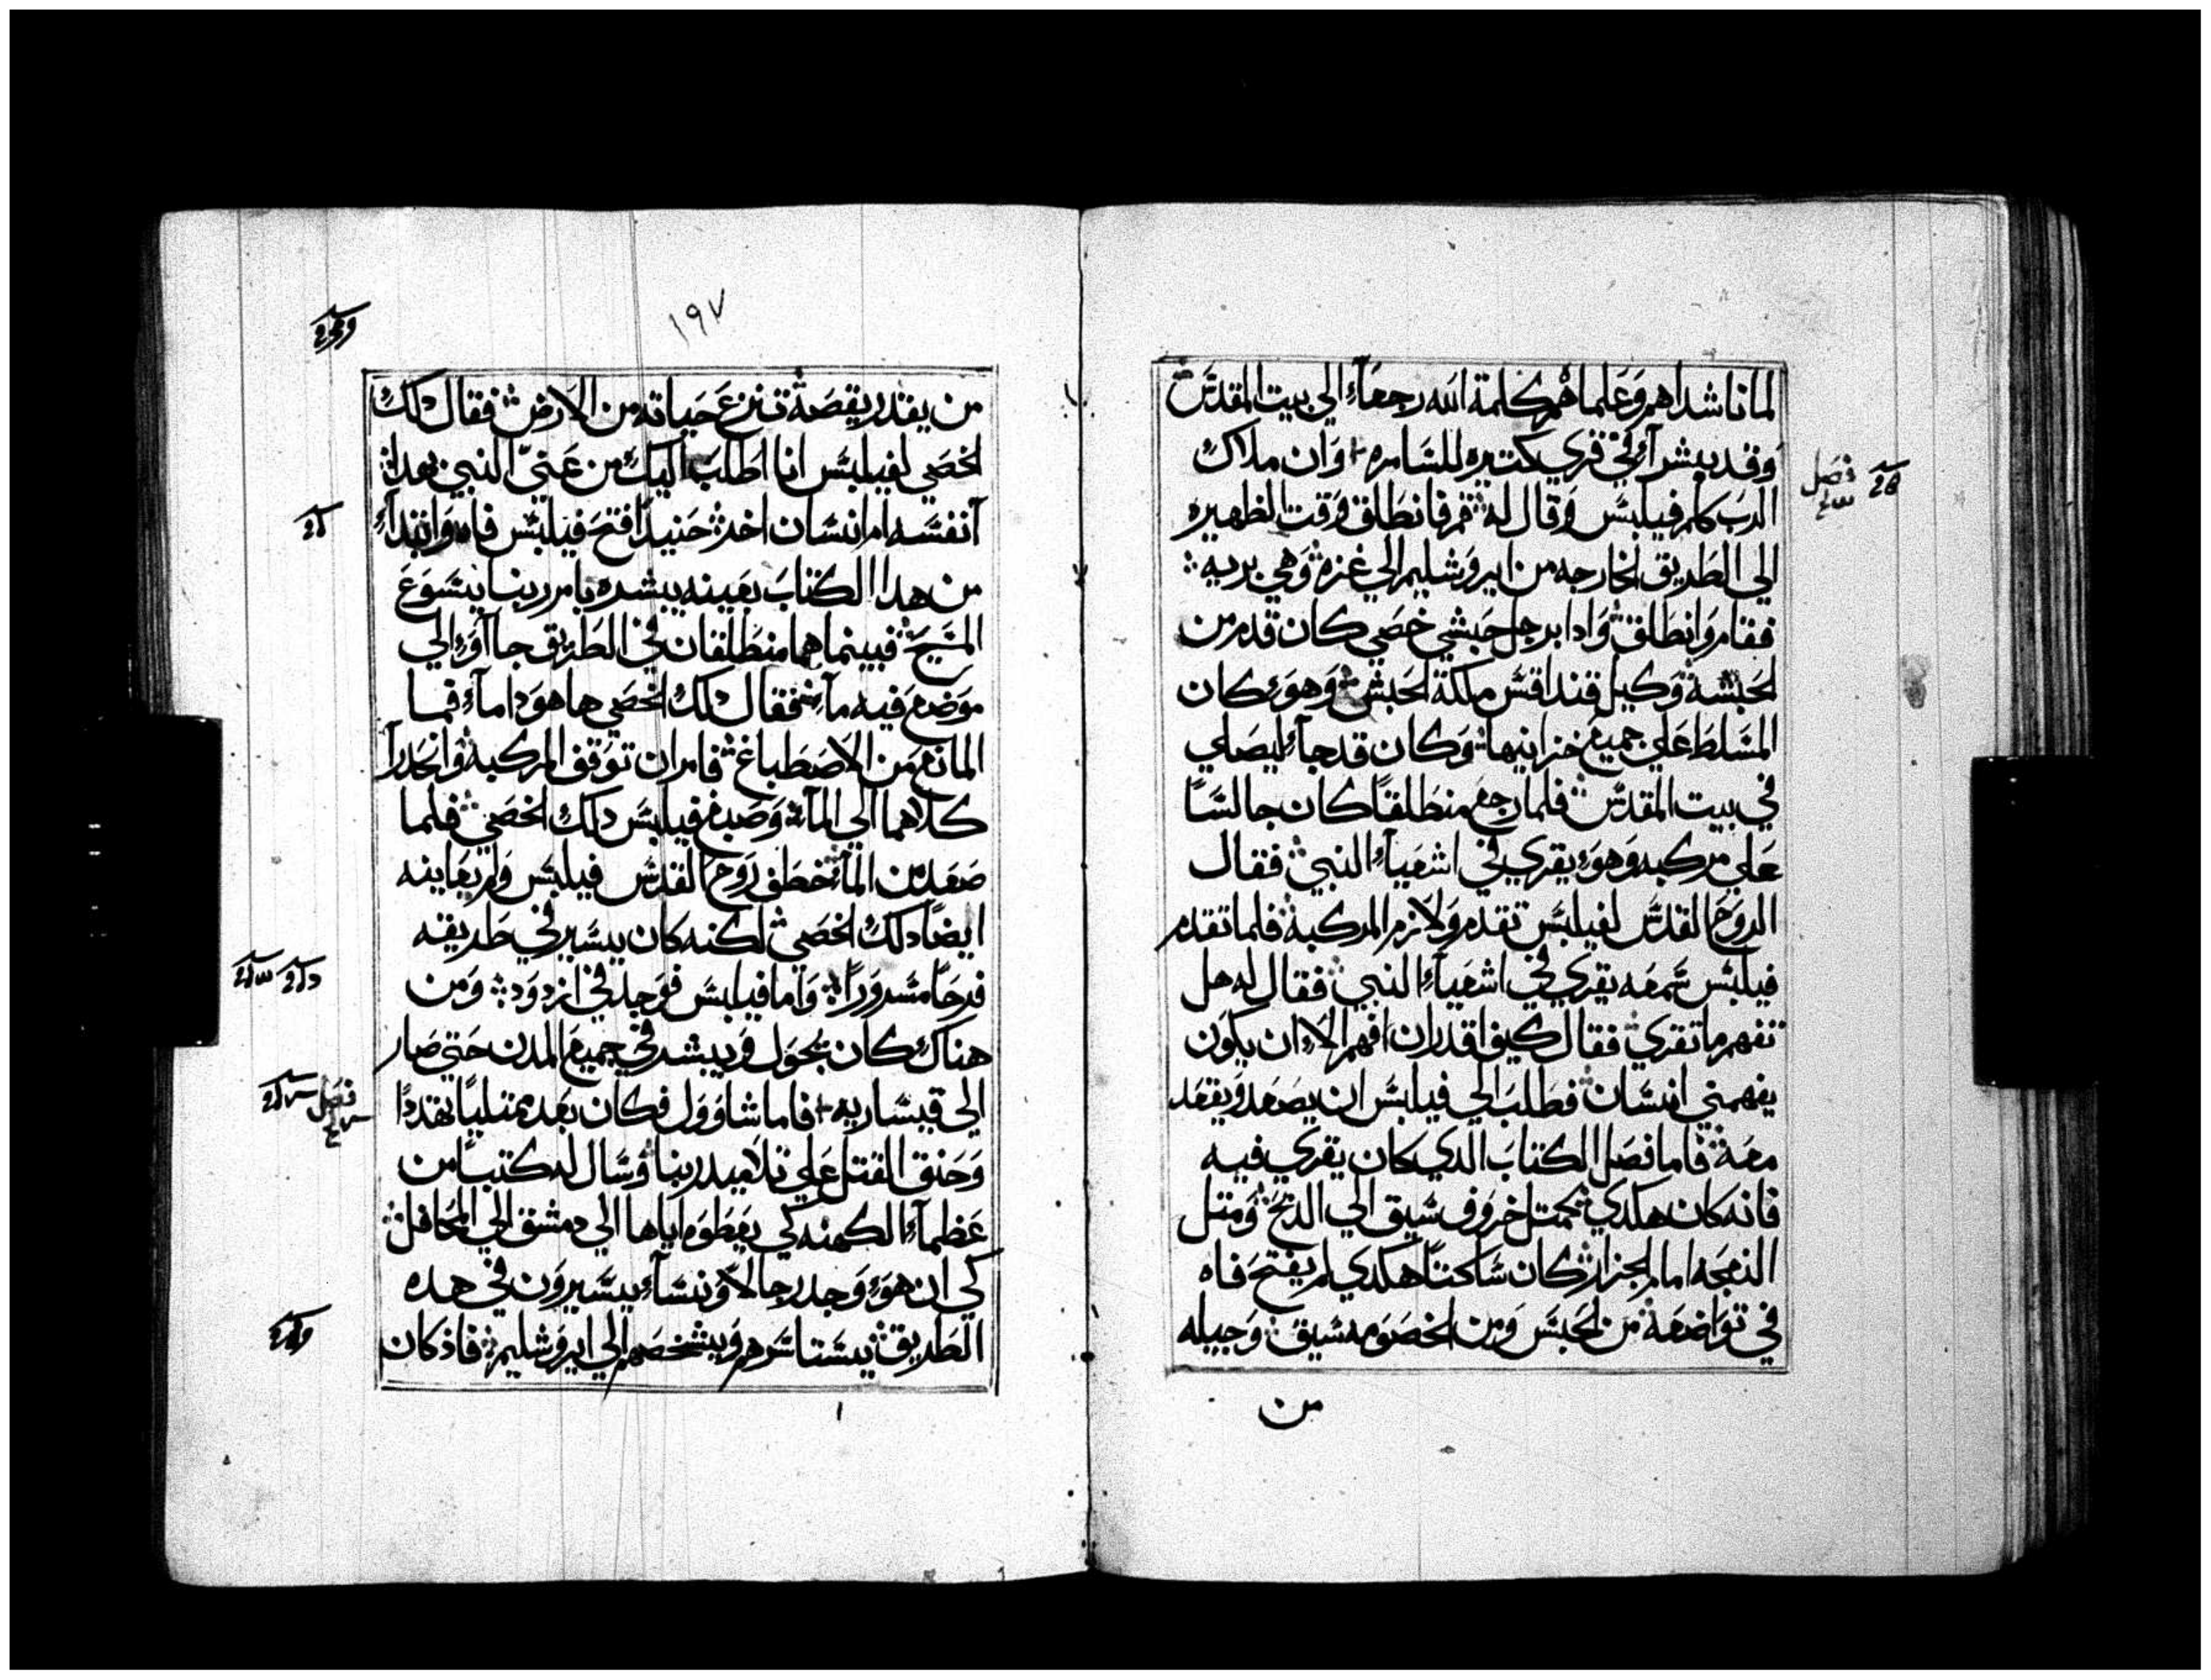 لما ناشداهم وعلماهم كلمة الله رجعاء الي بيت المقدس
وقد بيشراء في قري كتيره للسامره وان ملاك
الرب كلم فيلبس وقال له قم فانطلق وقت الظهيره
الي الطريق الخارجه من ايروشليم الي غزه وهي بريه
فقام وانطلق وادا برجل حبشي خصي كان قدم من
الحبشه وكيل قنداقس ملكة الحبش وهوء كان
المسلط علي جميع خزاينها وكان قد جاء ليصلي
في بيت المقدس فلما رجع منطلقا كان جالسا
علي مركبه وهوء يقري في اشعياء النبي فقال
الروح القدس لفيلبس تقدم ولازم المركبه فلما تقدم
فيلبس سمعه يقري في اشعياء النبي فقال له هل
تفهم ما تقري فقال كيف اقدر ان افهم الا ان يكون
يفهمني انسان فطلب الي فيلبس ان يصعد ويقعد
معه فاما فصل الكتاب الدي كان يقري فيه
فانه كان هكدي كمتل خروف سيق الي الدبح ومتل
النعجه امام الجزار كان ساكتا هكدي لم يفتح فاه
في تواضعه من الحبس ومن الخصومه سيق وجيله
من
فصل
١٩٧
من يقدر يقصه تنزع حياته من الارض فقال دلك
الخصي لفيلبس انا اطلب اليك من عني النبي بهدا
انفسه ام انسان اخر حنيدا فتح فيلبس فاه وابتداء
من هدا الكتاب بعينه يبشره بامر ربنا يسوع
المسيح فبينما هما منطلقان في الطريق جااوء الي
موضع فيه ماء فقال دلك الخصي ها هودا ماء فما
المانع من الاصطباغ فامر ان توقف المركبه وانحدرا
كلاهما الي الماء وصبغ فيلبس دلك الخصي فلما
صعد من الماء خطف روح القدس فيلبس ولم يعاينه
ايضا دلك الخصي لكنه كان يسير في طريقه
فرحا مسرورا واما فيلبس فوجد في ازدود ومن
هناك كان يجول ويبشر في جميع المدن حتي صار
الي قيساريه فاما شاوول فكان بعد ممتليا تهددا
وحنق القتل علي تلاميد ربنا وسال له كتبا من
عظماء الكهنه كي يعطوه اياها الي دمشق الي المحافل
كي ان هوء وجد رجالا ونساء يسيرون في هده
الطريق يستاسرهم ويشخصهم الي ايروشليم فاذ كان
فصل